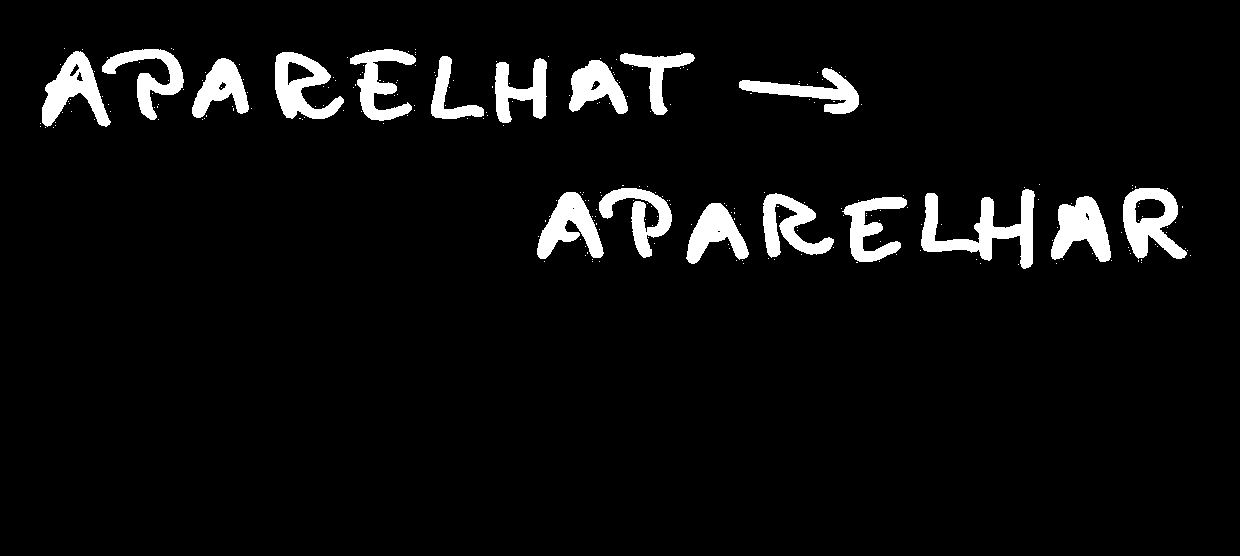 APARELHAT →
APARELHAR